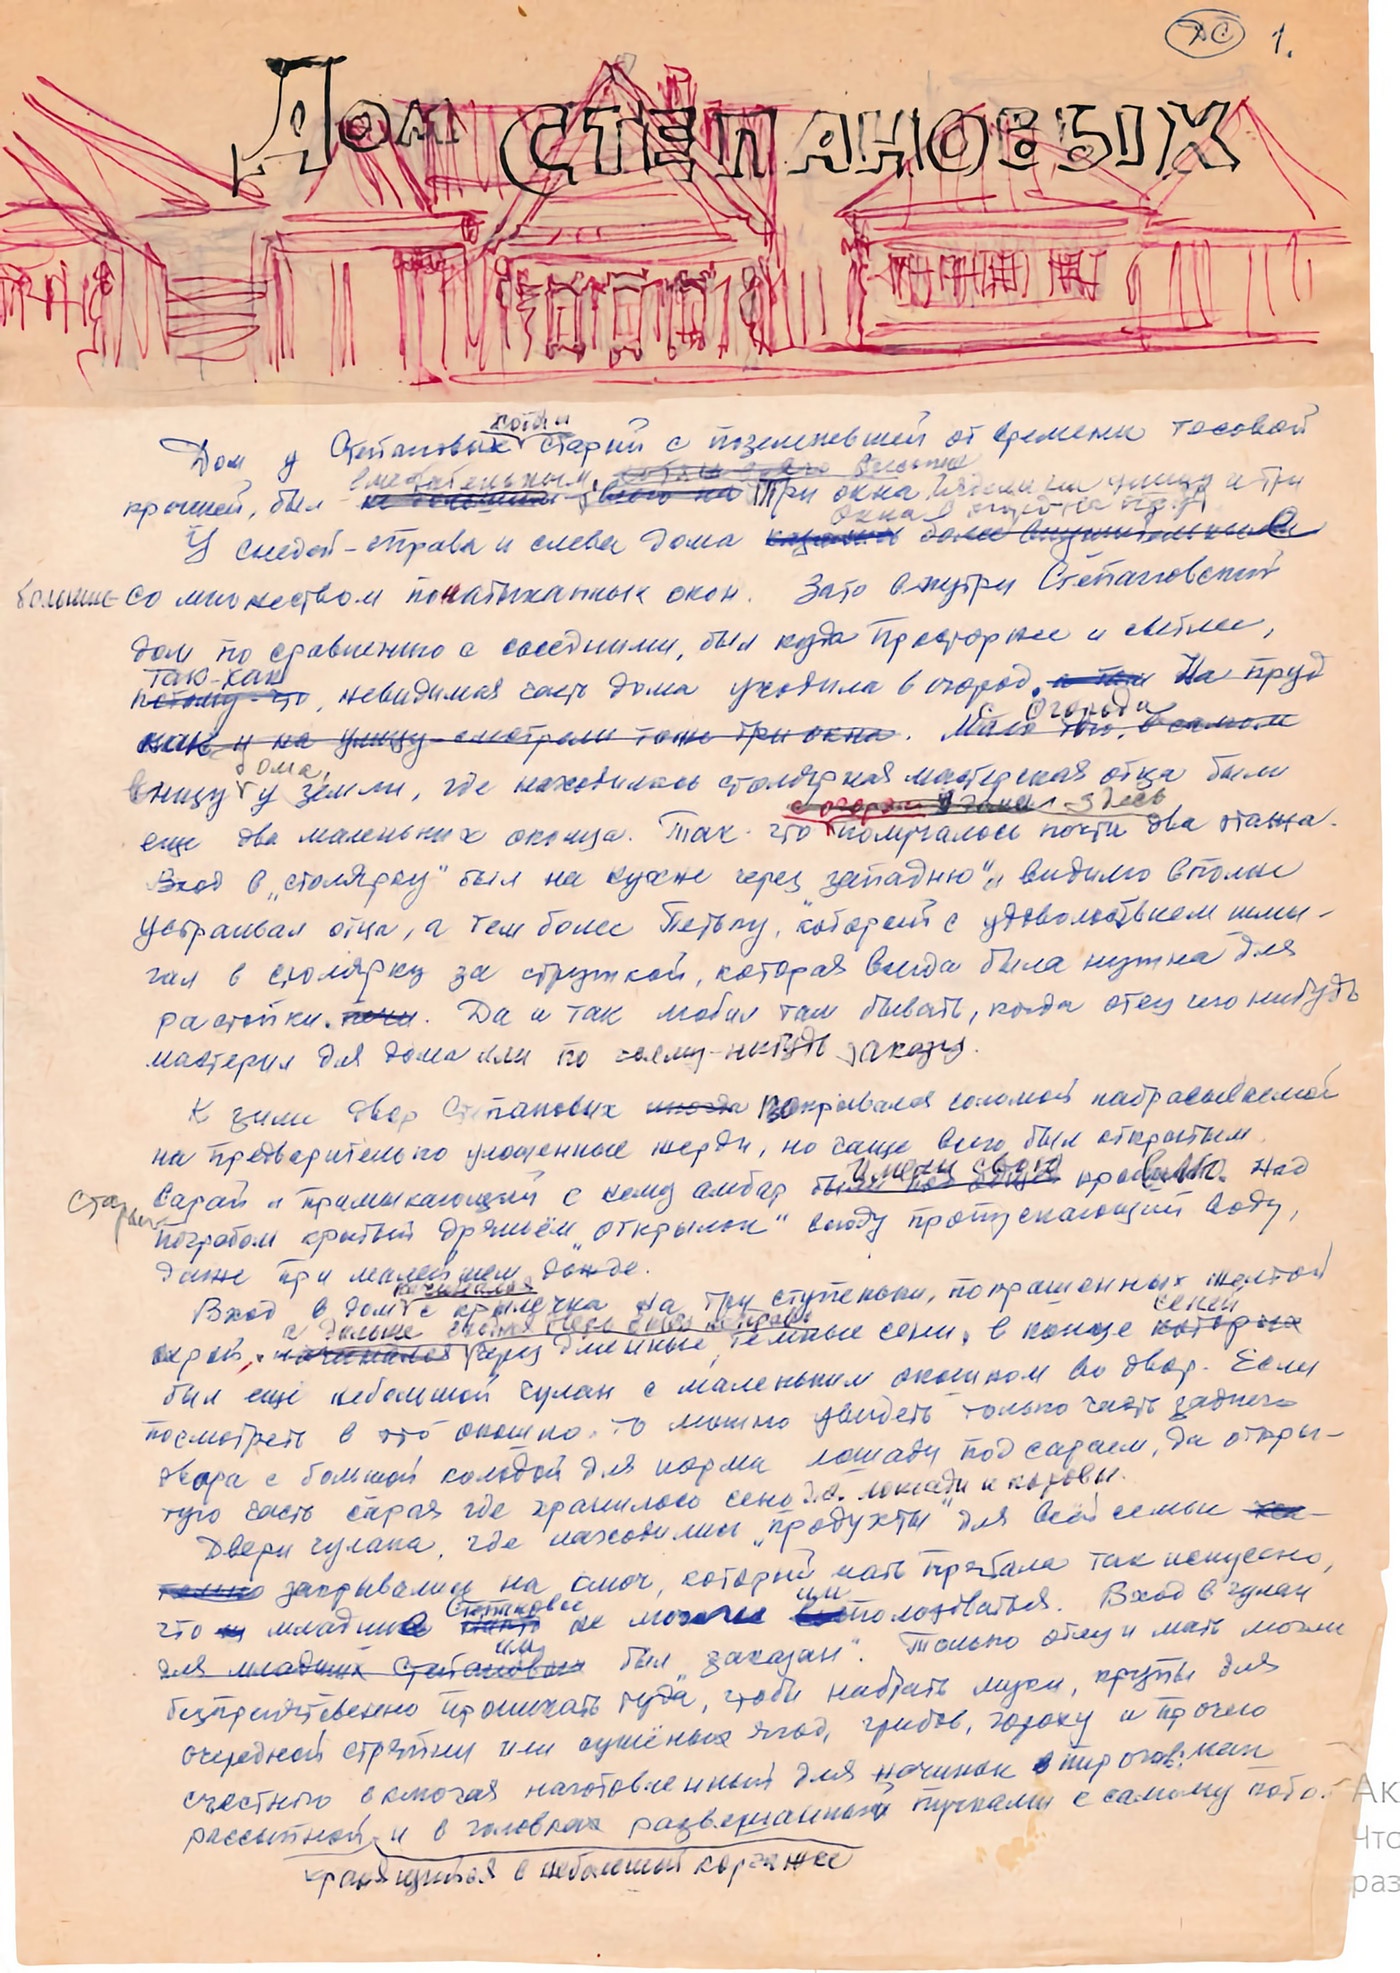 ДС 1.
Дом СТЕПАНОВЫХ
хотя и
Дом у Степановых старый с поземлевшей от времени тесовой
внешне
крышей, был не большим всего на Три окна на улицу и три
окна в огород на пруд.
У соседей – справа и слева дома казались более внушительные
большие со множеством понатыканных окон. Зато внутри Степановский
дом по сравнению с соседними, был куда просторнее и светлее,
так-как
потому-что, невидимая часть дома уходила в огород. а там На пруд
с огорода
как и на улицу смотрели тоже три окна. Мало того, в самом
дома,
внизу у земли, где находилась столярная мастерская отца были
с огорода здесь
еще два маленьких оконца. Так что получалось почти два этажа.
Вход в „столярку" был на кухне через западню" и видимо вполне
устраивал отца, а тем более Петьку, который с удовольствием шмы-
гал в столярку за стружкой, которая всегда была нужна для
растопки печи. Да и так любил там бывать, когда отец что нибудь
мастерил для дома или по чьему-нибудь заказу.
К зиме двор Степановых иногда покрывался соломой набрасываемой
на предварительно уложенные жерди, но чаще всего был открытым.
имели свою
Сарай и примыкающий с нему амбар были под общей кровлю. Над
старым
погребом крытый дряньём „открылок" всюду пропускающий воду,
даже при малейшем дожде.
начинался
Вход в дом с крылечка на три ступеньки, покрашенных желтой
сеней
а дальше
охрой, начинался через длинные, темные сени, в конце которых
был ещё небольшой чулан с маленьким окошком во двор. Если
посмотреть в это окошко, то можно увидеть только часть заднего
двора с большой колодой для корма лошади под сараем, да откры-
тую часть сарая где хранилось сено для лошади и коровы.
Двери чулана, где находились „продукты" для всей семьи
закрывались на ключ, который мать прятала так искусно,
Степановы им
что младшие никто не могли воспользоваться. Вход в чулан
им
для младших Степановых был „заказан". Только отец и мать могли
беспрепятственно проникать туда, чтобы набрать муки, крупы для
очередной стряпни или сушёных ягод, грибов, гороху и прочего
съестного включая наготовленный для начинок в пирогов: мак
рассыпной и в головках развешанный пучками с самому
хранящийся в небольшой корчажке
Ак
Что
раз